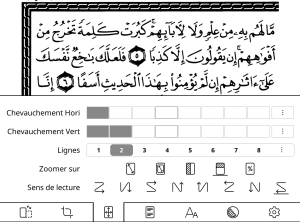 مَّا لَهُم بِهِۦ مِنْ عِلْمٍ وَلَا لِـَٔابَآئِهِمْ ۚ كَبُرَتْ كَلِمَةً تَخْرُجُ مِنْ
أَفْوَٰهِهِمْ ۚ إِن يَقُولُونَ إِلَّا كَذِبًا ٥ فَلَعَلَّكَ بَـٰخِعٌ نَّفْسَكَ
عَلَىٰٓ ءَاثَـٰرِهِمْ إِن لَّمْ يُؤْمِنُوا۟ بِهَـٰذَا ٱلْحَدِيثِ أَسَفًا ٦ إِنَّا
Chevauchement Hori
Chevauchement Vert
Lignes 1 2 3 4 5 6 7 8
Zoomer sur
Sens de lecture